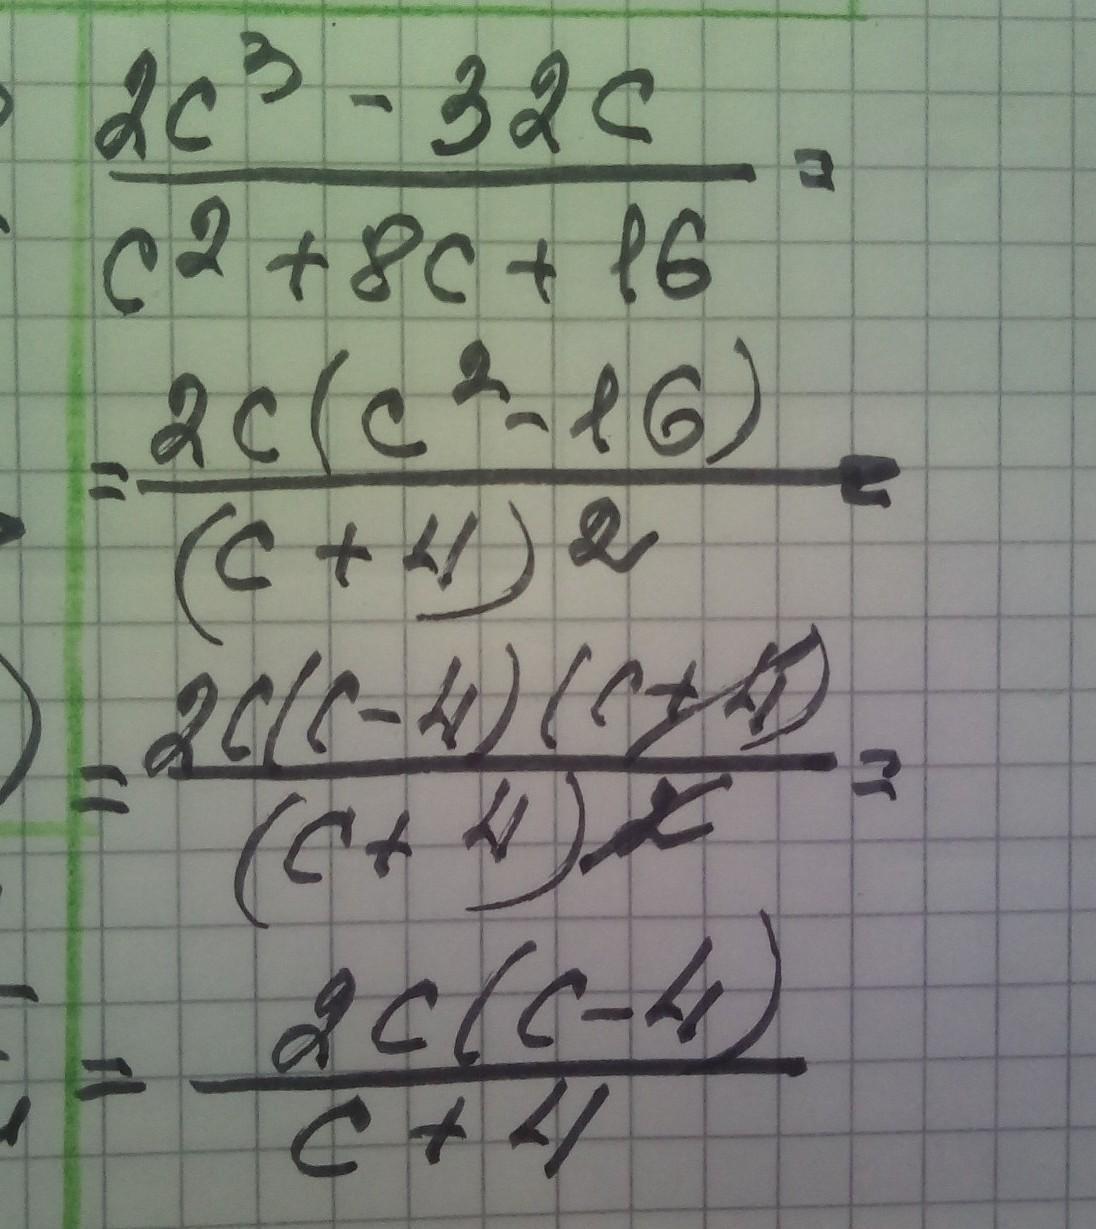 2c³ - 32c
c² + 8c + 16 =
= 2c(c² - 16)
(c + 4)² =
= 2c(c - 4)(c + 4)
(c + 4)² =
= 2c(c - 4)
c + 4